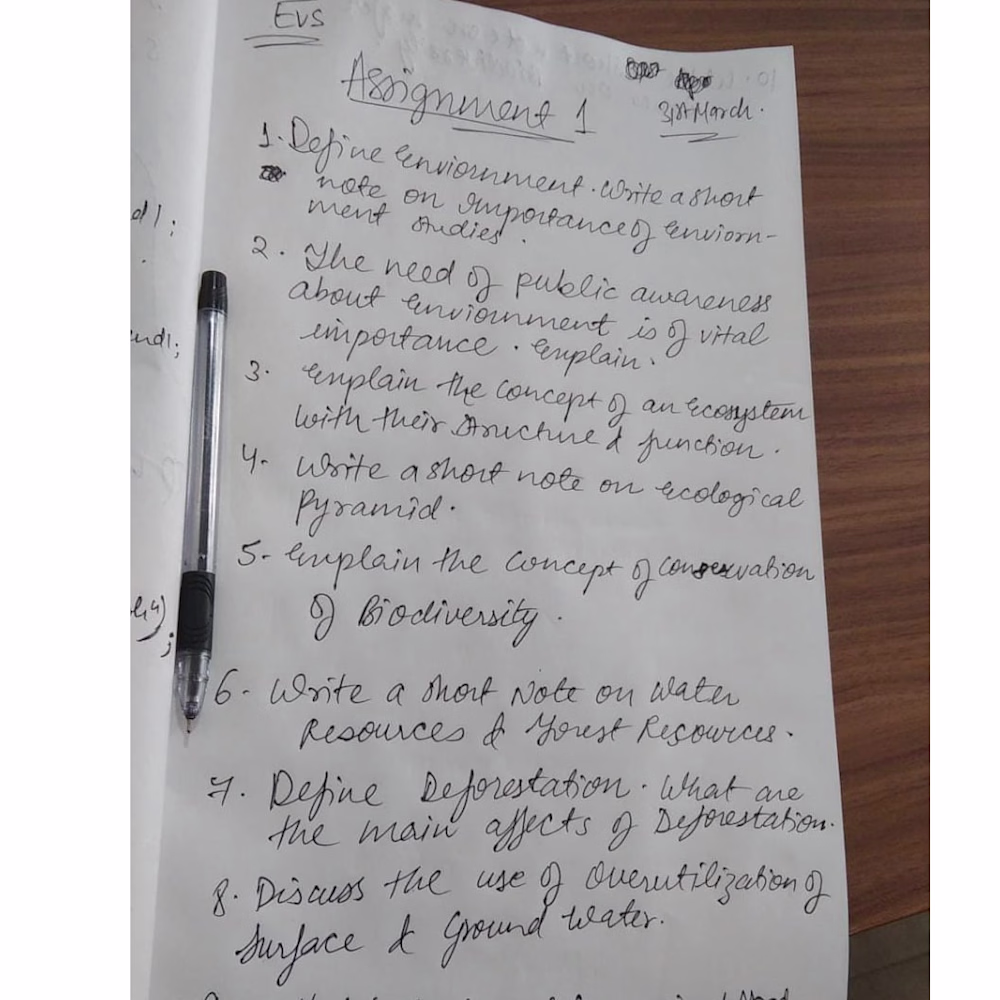 EVS
Assignment 1
31st March.
1. Define Enviornment. Write a short
note on Importance of Enviorn-
ment Studies.
2. The need of public awareness
about Enviornment is of vital
importance. Explain.
3. Explain the concept of an Ecosystem
with their Structure & function.
4. Write a short note on Ecological
Pyramid.
5- Explain the concept of conservation
of Biodiversity.
6- Write a short Note on Water
Resources & Forest Resources.
7. Define Deforestation. What are
the main affects of Deforestation.
8. Discuss the use of Overutilization of
Surface & Ground Water.
d1;
end1;